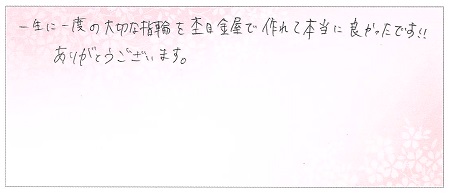 一生に一度の大切な指輪を杢目金屋で作れて本当に良かったです!!
ありがとうございます。